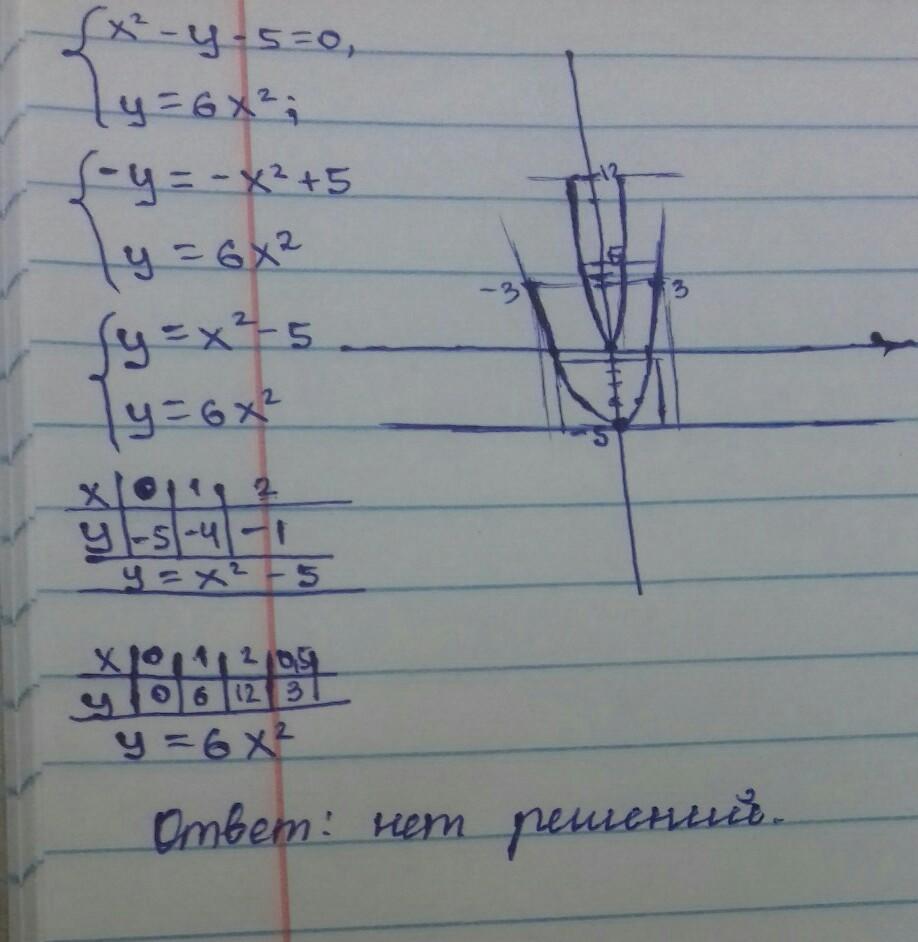 x² - y - 5 = 0,
y = 6x²;
-y = -x² + 5
y = 6x²
y = x² - 5
y = 6x²
x 0 1 2
y -5 -4 -1
y = x² - 5
x 0 1 2 0,5
y 0 6 12 3
y = 6x²
Ответ: нет решений.
12
6
-3 3
-5